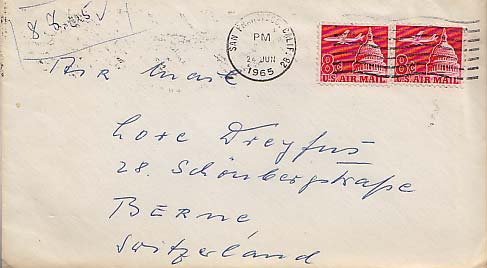 SAN FRANCISCO, CALIF. 28
PM
24 JUN
1965
8c 8c
U.S. AIR MAIL U.S. AIR MAIL
Air Mail
Lore Dreyfus
28. Schönbergstraße
BERNE
Switzerland